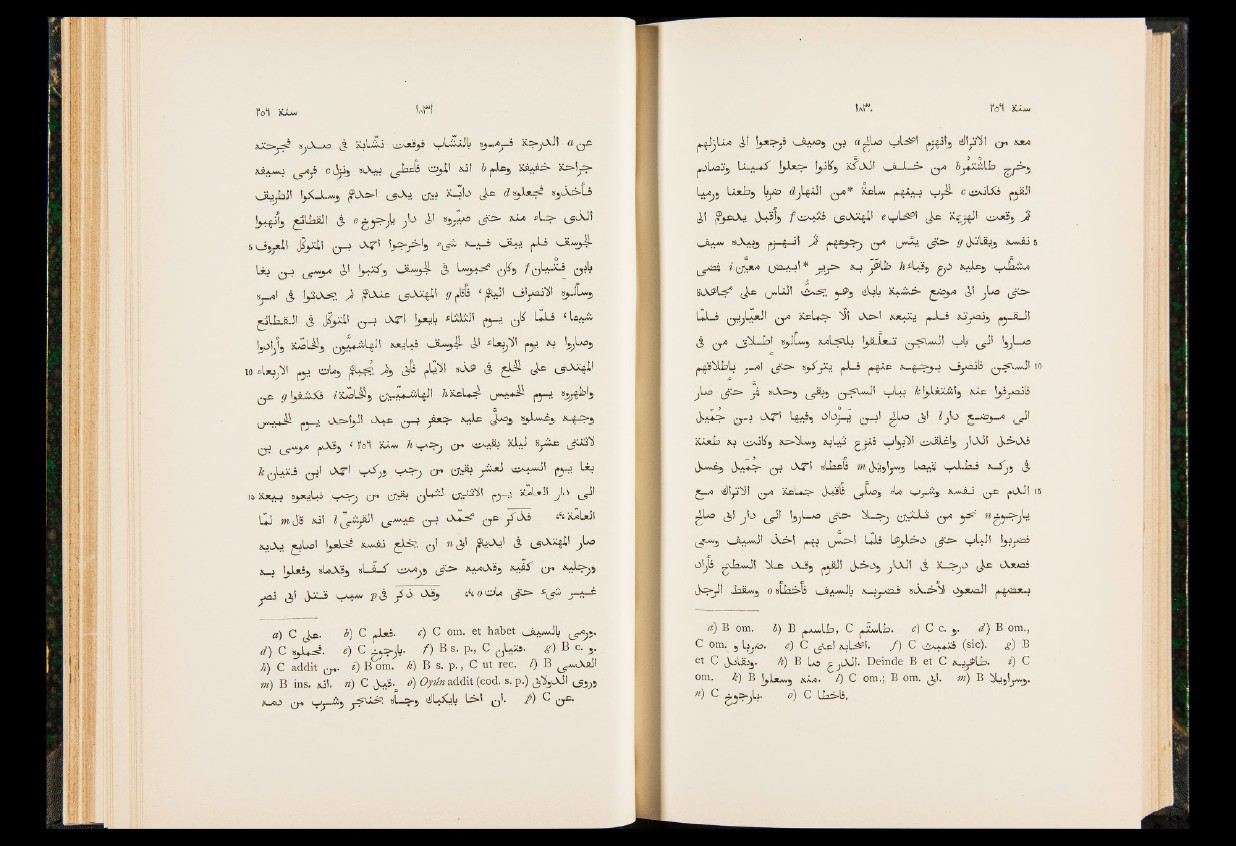 سنة ٢٥٦ ١٨٣٠
معه من الاتراك وانهزم اصحاب صالح a بن وصيف فرجعوا الى منازلهم
وخرج طاشتمر b من خلف الدكّة وكانوا جعلوا كمينا وتصادم
القوم فكانت c الحرب بينهم ساعة *من النهار d ضربا وطعنا ورميا
ثم وقعت الهزيمة على اصحاب e المهتدى فثبت f واقبل يدعوهم الى
5 نفسه ويقاتل g حتى يئس من رجوعهم ثم انهزم وبيده سيف
مشطّب وعليه درع وقباء h ظاهر به حرير *ابيض معيّن i فمضى
حتى صار الى موضع خشبة بابك وهو يحثّ الناس على مجاهدة
القوم ونصرته فلم يتبعه احد الّا جماعة من العيّارين فلمّا
صاروا الى باب السجن تعلّقوا بلجامه وسألوه اطلاق من فى
10 السجن فانصرف بوجهه عنهم فلم يتركوه حتى امر باطلاقهم
فانصرفوا عنه واشتغلوا k بباب السجن وبقى وحده فمرّ حتى صار
الى موضع دار l ابى صالح ابن يزداد وفيها احمد بن جميل
فدخل الدار وغلقت الابواب فنزع ثيابه وسلاحه وكانت به طعنة
فى وركه فطلب قميصا وسراويل m فاعطاه احمد بن جميل وغسل
15 الدم عن نفسه وشرب ماء وصلّى فاقبل جماعة من الاتراك مع
يارجوخ n نحو من ثلثين رجلا حتى صاروا الى دار ابى صالح
فضربوا الباب حتى دخلوها فلمّا احسّ بهم اخذ السيف وسعى
فصعد على درجة فى الدار ودخل القوم وقد علا السطح فاراد
بعضهم الصعود لأخذه فضربه بالسيف فأخطأه o وسقط الرجل
a) B om. b) B طاسمر, C طاستم. c) C c. و. d) B om.,
C om. و ضربا. e) C اصحابه اعنى. f) C فتممت (sic). g) B
et C ونقاتل. h) B الدرع ما. Deinde B et C ظاهريه. i) C
om. k) B منه وسعلوا. l) C om.; B om. ابى. m) B وسراويلا.
n) C بارجوخ. o) C فاخطا.
سنة ٢٥٦ ١٨٣١
عن a الدرجة فرموه بالنشّاب فوقعت نشّابة فى صدره فجرحته
جراحة خفيفة وعلم b انه الموت فأعطى بيده ونزل c فرمى بسيفه
فأخذوه فجعلوه d على دابّة بين يدى احدهم وسلكوا الطريق
الذى جاء منه حتى صيّروه الى دار يارجوخ e فى القطائع وأنهبوا
5 الجوسق فلم يبق فيه شىء واخرجوا احمد بن المتوكّل المعروف
بابن فتيان f وكان محبوسا فى الجوسق وكتبوا الى موسى بن بغا
وسألوه الانصراف اليهم، فأقام g المهتدى عندهم لم يحدثوا فى امره
شيئا، فلمّا كان يوم الثلثاء بايعوا احمد بن المتوكّل فى القطائع
وصاروا به يوم الاربعاء الى الجوسق فبايعه الهاشميّون والخاصّة وأرادوا
10 المهتدى على الخلع فى هذه الايّام فأبى ولم يجبهم ومات يوم الاربعاء
واظهروه يوم الخميس لجماعة h الهاشميّين والخاصّة i فكشفوا g عن
وجهه وغسلوه وصلّى عليه جعفر بن عبد الواحد يوم الخميس
لاثنتى عشرة ليلة بقيت من رجب h سنة ٢٥٦، وقدم موسى بن
بغا يوم السبت لعشر بقين من رجب وركب احمد ابن فتيان k
15 الى دار العامّة يوم الاثنين لثمان بقين من رجب فبايعوه بيعة
العامّة، فذكر عن محمّد بن عيسى القرشىّ l انه قال m لمّا
صار المهتدى فى ايديهم ابى n ان يخلع نفسه فخلعوا اصابع يديه
ورجليه من كفّيه وقدميه حتى ورمت كفّاه وقدماه وفعلوا به
غير شىء حتى مات o، وقد ذكر فى p سبب قتل ابى نصر
a) C على. b) C فعلم. c) C om. et habet ورمى بالسيف.
d) C فحملوه. e) C بارجوخ. f) B s. p., C قتيان. g) B c. و.
h) C addit من. i) B om. k) B s. p., C ut rec. l) B القدسى
m) B ins. انه. n) C فقيل. o) Oyún addit (cod. s. p.) وروى الدولابى
ان اخا بايكباك وجأه بخنجر وشرب من دمه. p) C عن.